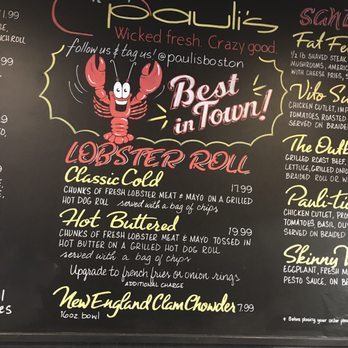 Pauli's
Wicked fresh. Crazy good.
follow us & tag us! @paulisboston
Best
in Town!
LOBSTER ROLL
Classic Cold 17.99
CHUNKS OF FRESH LOBSTER MEAT & MAYO ON A GRILLED
HOT DOG ROLL served with a bag of chips
Hot Buttered 19.99
CHUNKS OF FRESH LOBSTER MEAT & MAYO TOSSED IN
HOT BUTTER ON A GRILLED HOT DOG ROLL
served with a bag of chips
Upgrade to french fries or onion rings
ADDITIONAL CHARGE
New England Clam Chowder 7.99
16oz bowl
Fat Fe
1/2 lb SHAVED STEAK
MUSHROOMS, AMERIC
WITH CHEESE FRIES, S
CHICKEN CUTLET, IMP
TOMATOES, ROASTED
SERVED ON BRAIDED
GRILLED ROAST BEEF,
LETTUCE, GRILLED ON
BRAIDED ROLL OR W
Pauli-
CHICKEN CUTLET, PRO
TOMATOES, BASIL, OLIV
SERVED ON BRAIDED
Skinny
EGGPLANT, FRESH M
PESTO SAUCE, ON BR
Before placing your order please